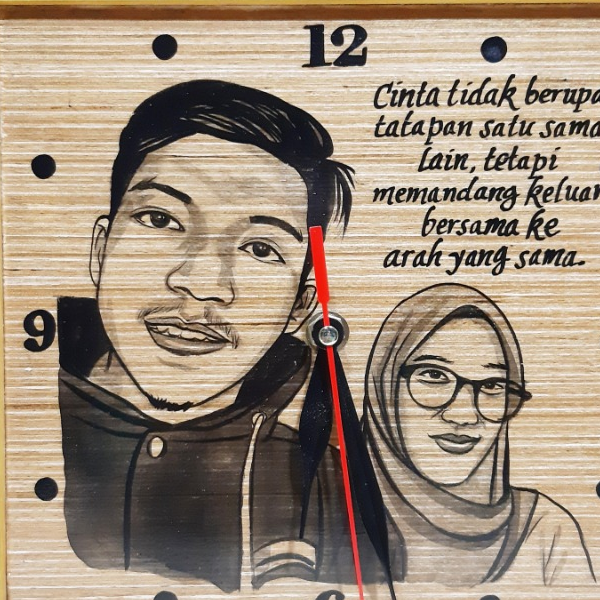 12
Cinta tidak berupa
tatapan satu sama
lain, tetapi
memandang keluar
bersama ke
arah yang sama.
9